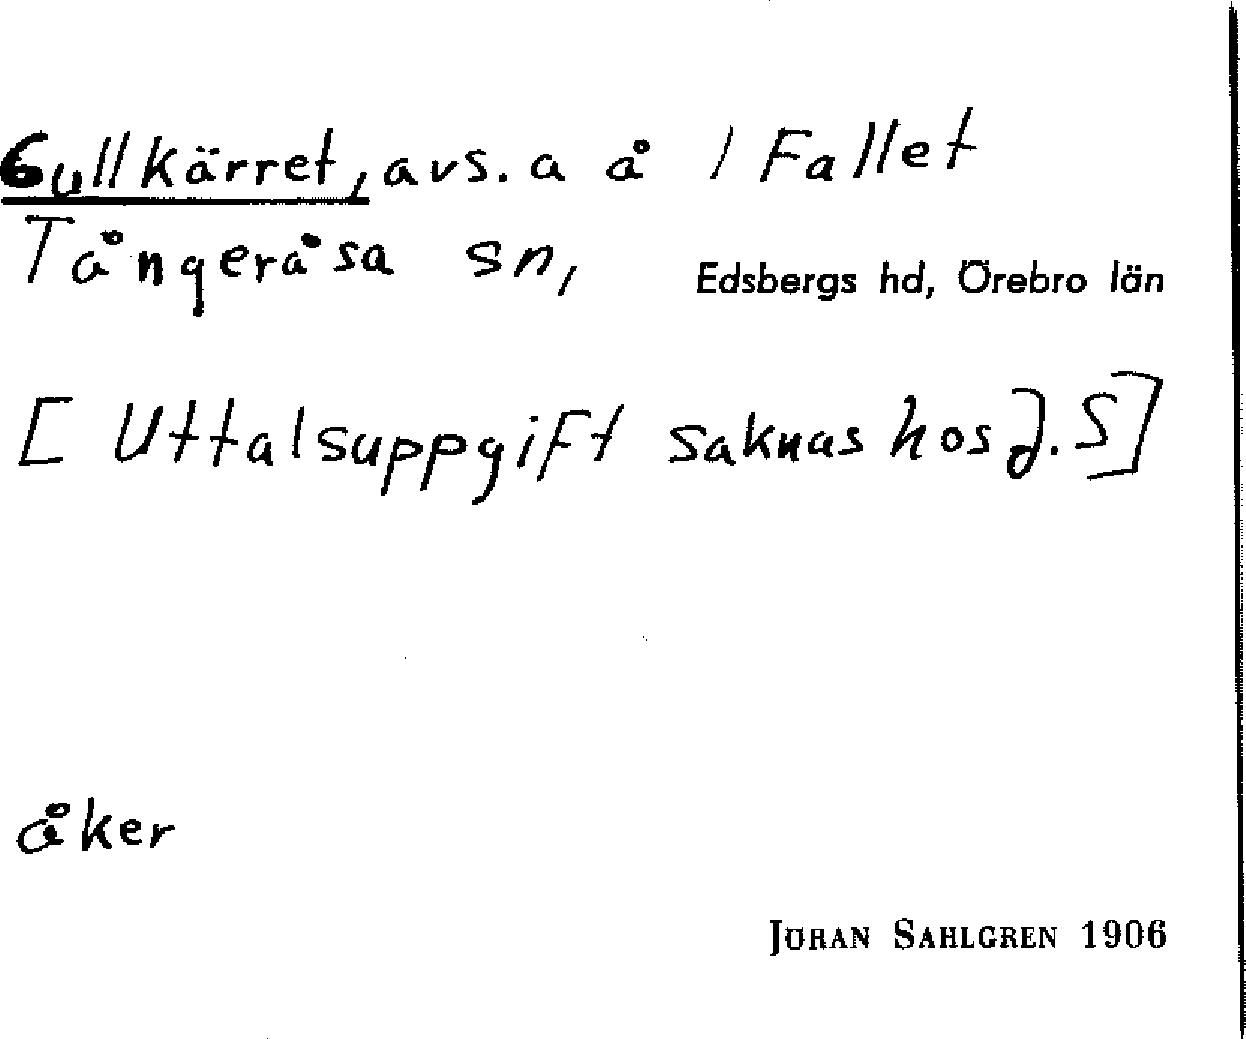 Gullkärret, avs. a å / Fallet
Tångeråsa sn, Edsbergs hd, Örebro län
[Uttalsuppgift saknas hos J.S]
åker
JOHAN SAHLGREN 1906